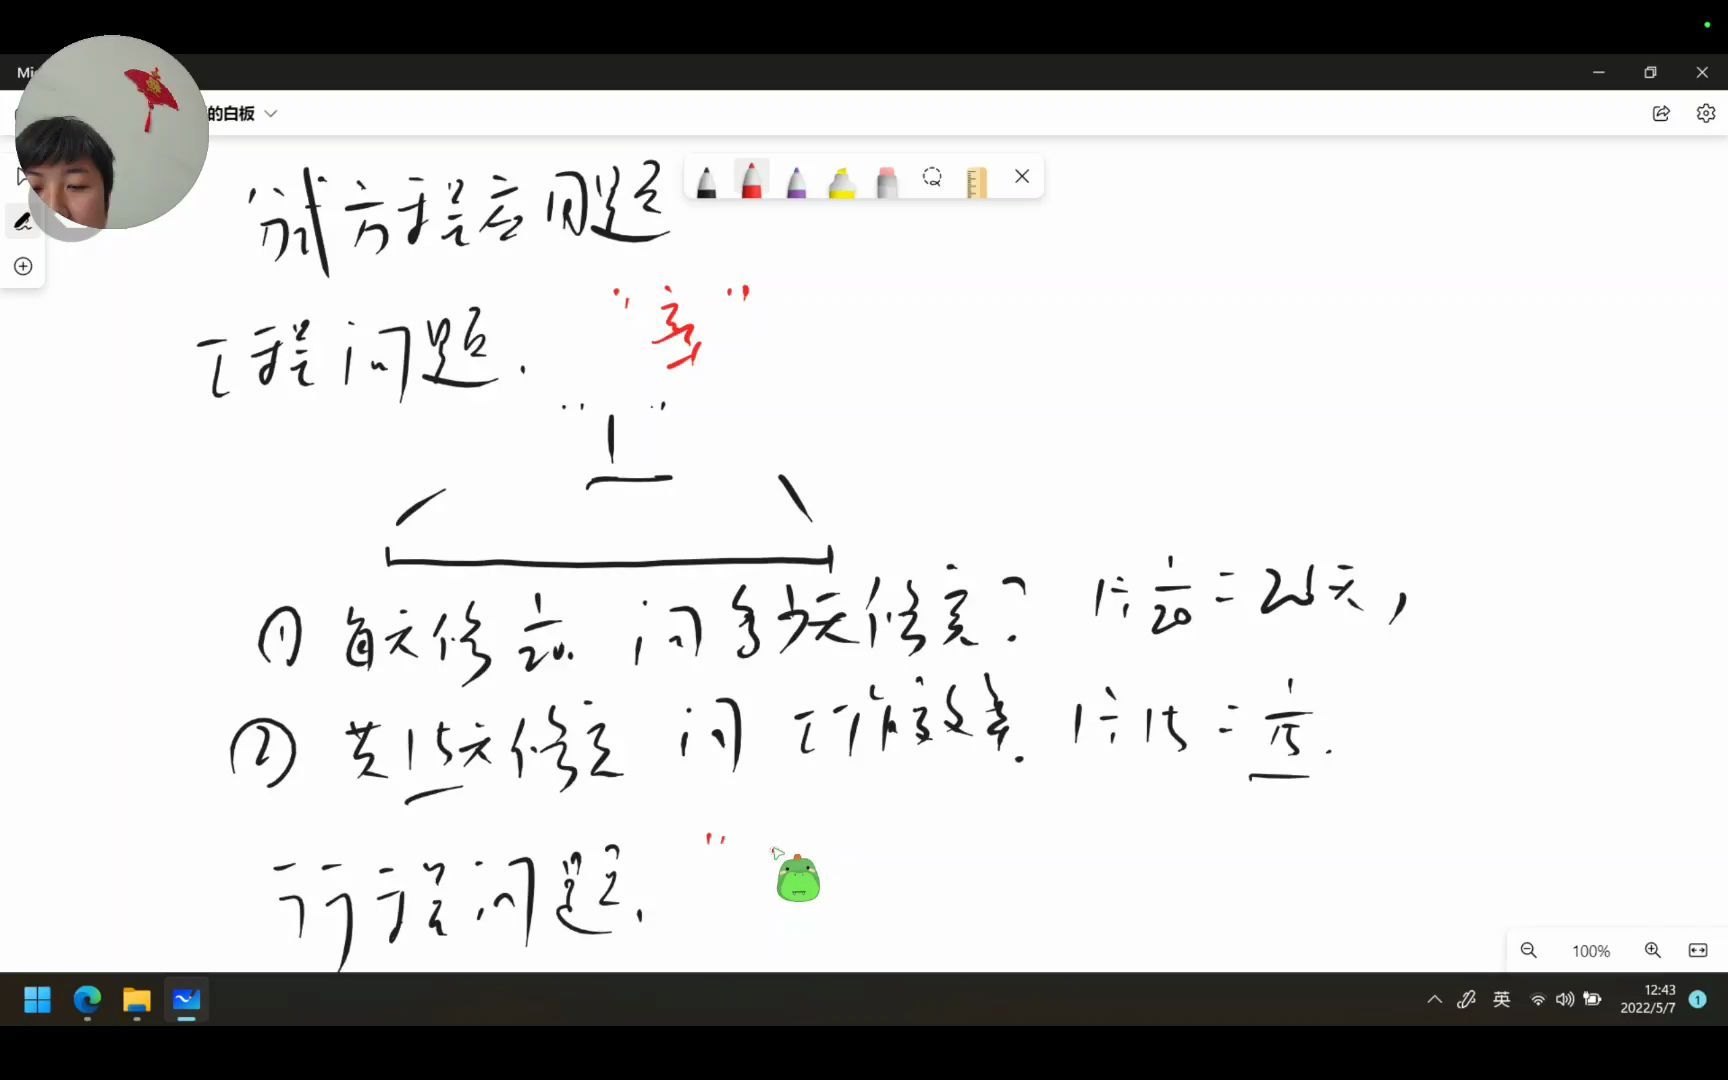 Mi
的白板
分式方程应用题
工程问题.
"1"
① 每天修 1/20. 问多少天修完? 1÷1/20=20天,
② 共15天修完 问 工作效率. 1÷15=1/15.
行程问题. "
100%
英
12:43
2022/5/7
1